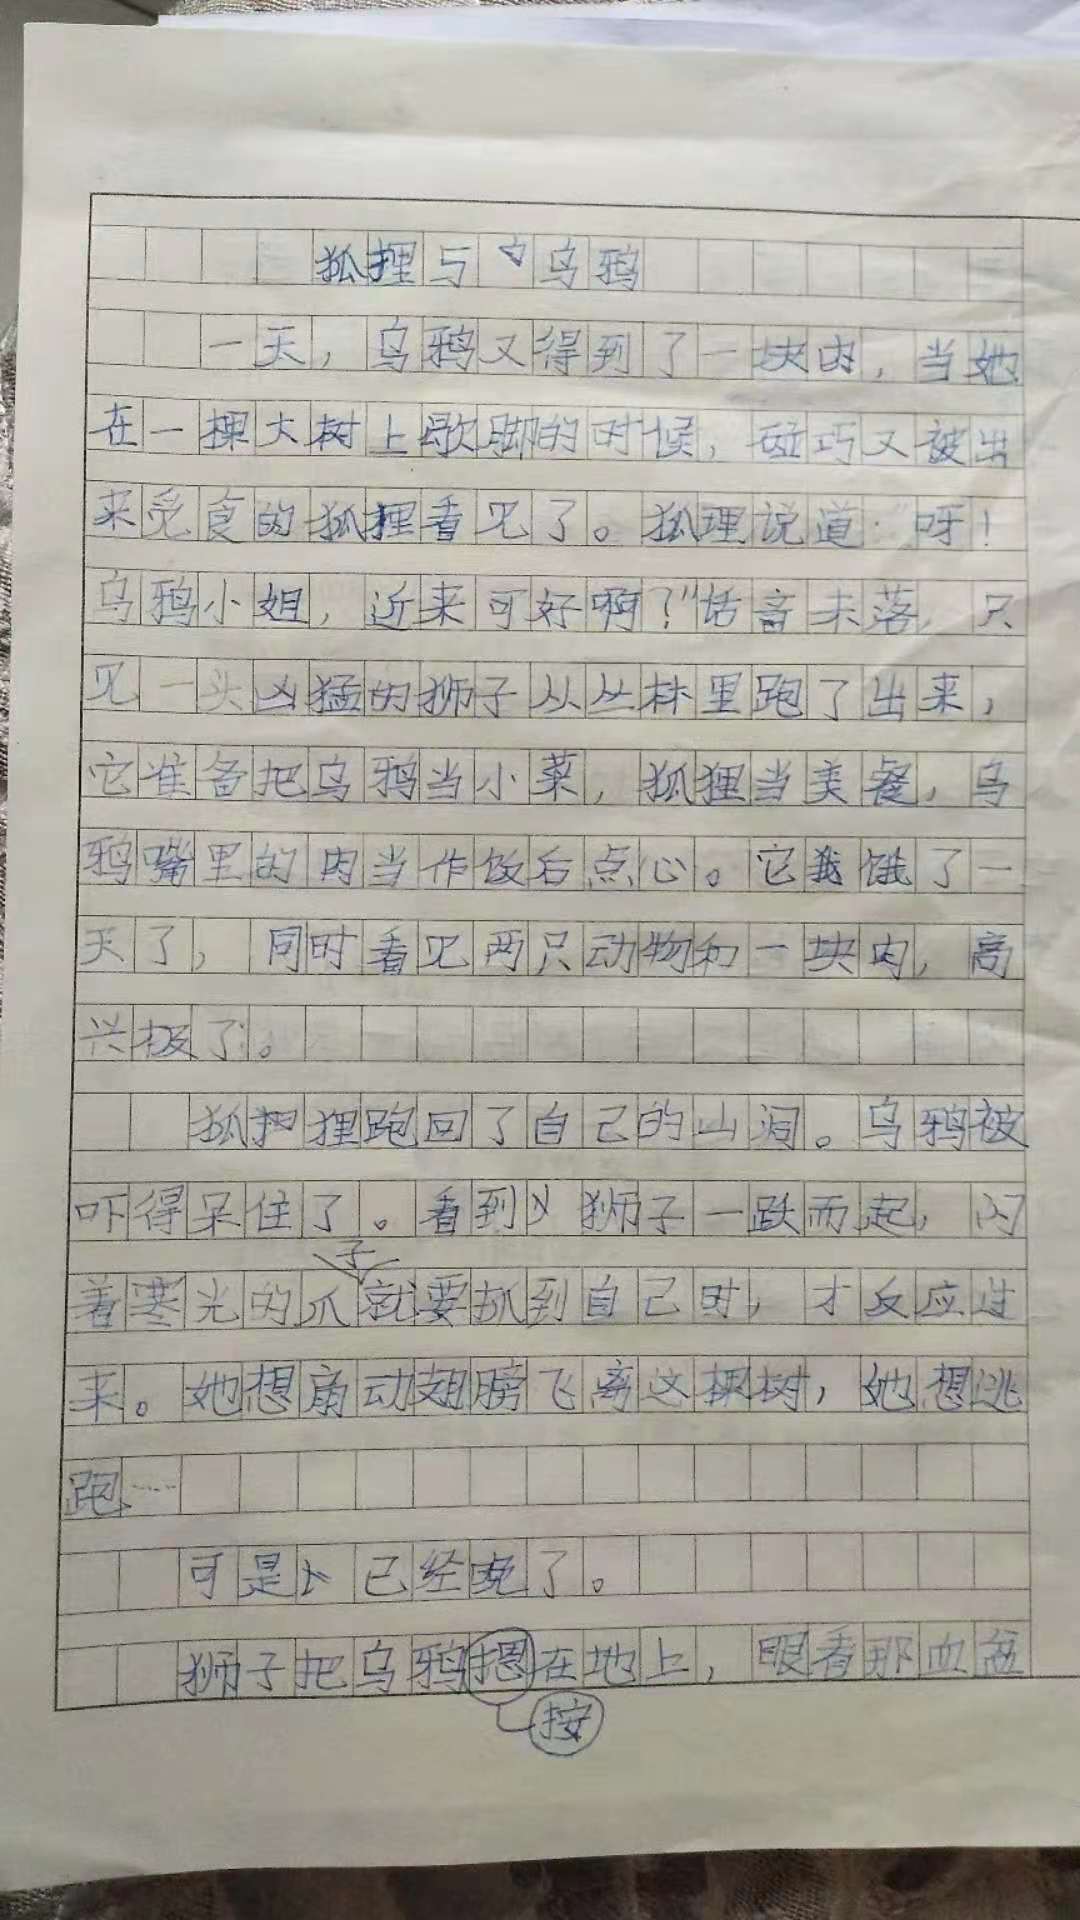 狐狸与乌鸦
一天，乌鸦又得到了一块肉，当她
在一棵大树上歇脚的时候，碰巧又被出
来觅食的狐狸看见了。狐理说道：“呀！
乌鸦小姐，近来可好啊？”话音未落，只
见一头凶猛的狮子从丛林里跑了出来，
它准备把乌鸦当小菜，狐狸当美餐，乌
鸦嘴里的肉当作饭后点心。它饿了一
天了，同时看见两只动物和一块肉，高
兴极了。
狐狸跑回了自己的山洞。乌鸦被
吓得呆住了。看到狮子一跃而起，闪
子
着寒光的爪就要抓到自己时，才反应过
来。她想扇动翅膀飞离这棵树，她想逃
跑……
可是已经晚了。
狮子把乌鸦摁在地上，眼看那血盆
按